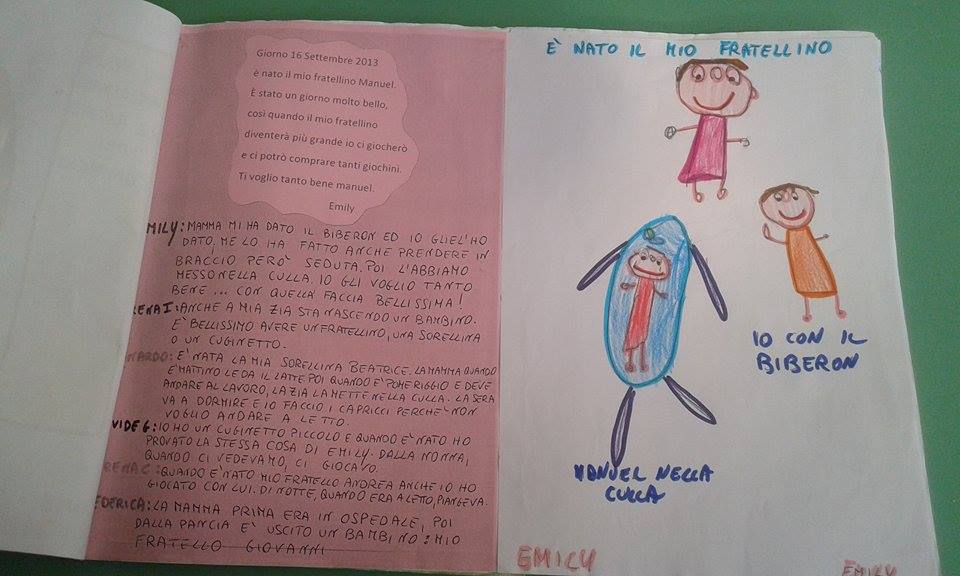 Giorno 16 Settembre 2013
è nato il mio fratellino Manuel.
È stato un giorno molto bello,
così quando il mio fratellino
diventerà più grande io ci giocherò
e ci potrò comprare tanti giochini.
Ti voglio tanto bene manuel.
Emily
MILY: MAMMA MI HA DATO IL BIBERON ED IO GLIEL'HO
DATO, ME LO HA FATTO ANCHE PRENDERE IN
BRACCIO PERÒ SEDUTA, POI L'ABBIAMO
MESSO NELLA CULLA. IO GLI VOGLIO TANTO
BENE... CON QUELLA FACCIA BELLISSIMA!
RENA I: ANCHE A MIA ZIA STA NASCENDO UN BAMBINO.
E' BELLISSIMO AVERE UN FRATELLINO, UNA SORELLINA
O UN CUGINETTO.
NARDO: E' NATA LA MIA SORELLINA BEATRICE. LA MAMMA QUANDO
E' MATTINO LE DA IL LATTE POI QUANDO E' POMERIGGIO E DEVE
ANDARE AL LAVORO, LA ZIA LA METTE NELLA CULLA. LA SERA
VA A DORMIRE E IO FACCIO I CAPRICCI PERCHE' NON
VOGLIO ANDARE A LETTO.
VIDE G: IO HO UN CUGINETTO PICCOLO E QUANDO E' NATO HO
PROVATO LA STESSA COSA DI EMILY. DALLA NONNA,
QUANDO CI VEDEVAMO, CI GIOCAVO.
RENA C: QUANDO E' NATO MIO FRATELLO ANDREA ANCHE IO HO
GIOCATO CON LUI. DI NOTTE, QUANDO ERA A LETTO, PIANGEVA.
EDERICA: LA MAMMA PRIMA ERA IN OSPEDALE, POI
DALLA PANCIA E' USCITO UN BAMBINO: MIO
FRATELLO GIOVANNI
È NATO IL MIO FRATELLINO
IO CON IL
BIBERON
MANUEL NELLA
CULLA
EMILY
EMILY